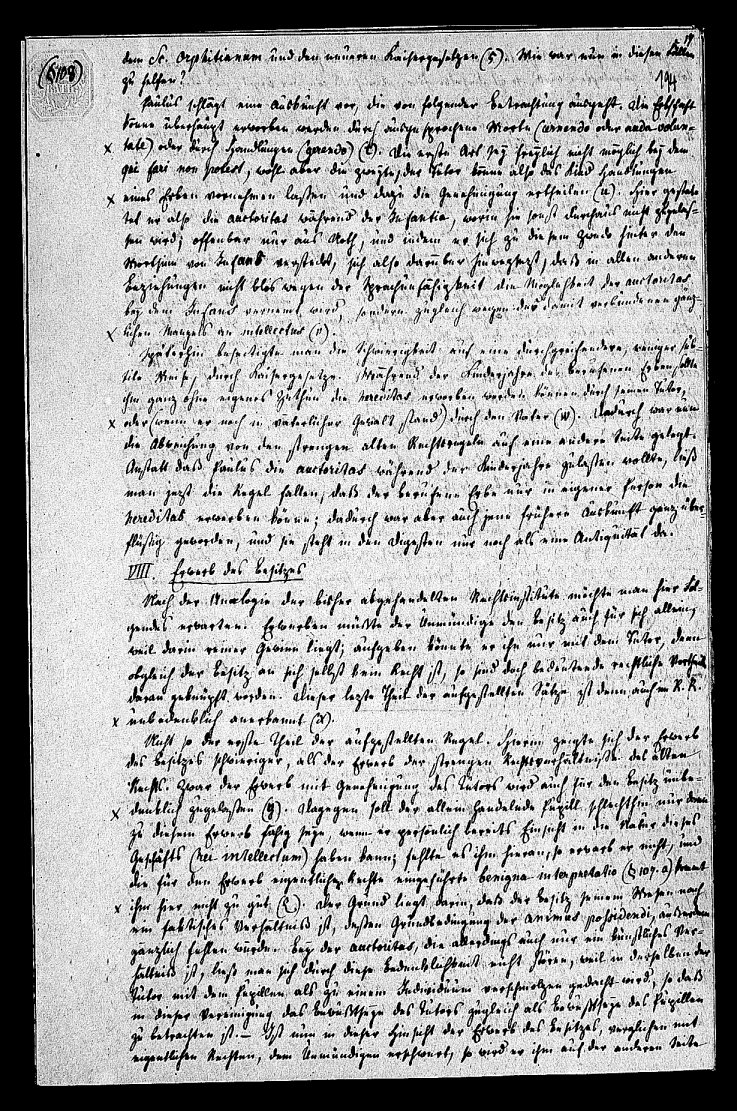 19
194
(§ 108)
dem Sc. Orphitianum und den neueren Kaisergesetzen (s). Wie war nun in diesen Fällen
zu helfen?
Paulus schlägt eine Auskunft vor, die von folgender Betrachtung ausgeht. Die Erbschaft
könne überhaupt erworben werden durch ausgesprochene Worte (cernendo oder nuda volun-
x tate) oder durch Handlungen (gerendo) (t). Die erste Art sey freylich nicht möglich bey dem
qui fari non potest, wohl aber die zweyte; der Tutor könne also das Kind Handlungen
x eines Erben vornehmen lassen und dazu die Genehmigung ertheilen (u). Hier gestat-
tet er also die auctoritas während der Infantia, worin sie sonst durchaus nicht zugelas-
sen wird; offenbar nur aus Noth, und indem er sich zu diesem Zweck hinter den
Wortsinn von Infans versteckt, sich also darüber hinwegsetzt, daß in allen anderen
Beziehungen nicht blos wegen der Sprachunfähigkeit die Möglichkeit der auctoritas
bey dem Infans verneint wird, sondern zugleich wegen des damit verbundenen gänz-
x lichen Mangels an intellectus (v).
Späterhin beseitigte man die Schwierigkeit auf eine durchgreifendere, weniger sub-
tile Weise, durch Kaisergesetze. Während der Kinderjahre des berufenen Erben, sollte
ihm ganz ohne eigenes Zuthun die hereditas erworben werden können durch seinen Tutor,
x oder (wenn er noch in väterlicher Gewalt stand) durch den Vater (w). Dadurch war nun
die Abweichung von den strengen alten Rechtsregeln auf eine andere Seite gelegt.
Anstatt daß Paulus die auctoritas während der Kinderjahre zulassen wollte, ließ
man jetzt die Regel fallen, daß der berufene Erbe nur in eigener Person die
hereditas erwerben könne; dadurch war aber auch jene frühere Auskunft ganz über-
flüssig geworden, und sie steht in den Digesten nur noch als eine Antiquität da.
VIII. Erwerb des Besitzes
Nach der Analogie der bisher abgehandelten Rechtsinstitute möchte man hier Fol-
gendes erwarten. Erwerben müßte der Unmündige den Besitz auch für sich allein,
weil darin reiner Gewinn liegt; aufgeben könnte er ihn nur mit dem Tutor, denn
obgleich der Besitz an sich selbst kein Recht ist, so sind doch bedeutende rechtliche Vortheile
daran geknüpft worden. Dieser letzte Theil der aufgestellten Sätze ist denn auch im R. R.
x unbedenklich anerkannt (x).
Nicht so der erste Theil der aufgestellten Regel. Hierin zeigte sich der Erwerb
des Besitzes schwieriger, als der Erwerb der strengen Rechtsverhältnisse des alten
Rechts. Zwar der Erwerb mit Genehmigung des Tutors wird auch für den Besitz unbe-
x denklich zugelassen (y). Dagegen soll der allein handelnde Pupill schlechthin nur dann
zu diesem Erwerb fähig seyn, wenn er persönlich bereits Einsicht in die Natur dieses
Geschäfts (rei intellectum) haben kann; fehlte es ihm hieran, so erwarb er nicht, und
die für den Erwerb eigentlicher Rechte eingeführte benigna interpretatio (§ 107. a) kommt
x ihm hier nicht zu gut (z). Der Grund liegt darin, daß der Besitz seinem Wesen nach
ein faktisches Verhältniß ist, dessen Grundbedingung der animus possidendi, außerdem
gänzlich fehlen würde. Bey der auctoritas, die allerdings auch nur ein künstliches Ver-
hältniß ist, ließ man sich durch diese Bedenklichkeit nicht stören, weil in derselben der
Tutor mit dem Pupillen als zu einem Individuum verschmolzen gedacht wird, so daß
in dieser Vereinigung das Bewußtseyn des Tutors zugleich als Bewußtseyn des Pupillen
zu betrachten ist. – Ist nun in dieser Hinsicht der Erwerb des Besitzes, verglichen mit
eigentlichen Rechten, dem Unmündigen erschwert, so wird er ihm auf der anderen Seite